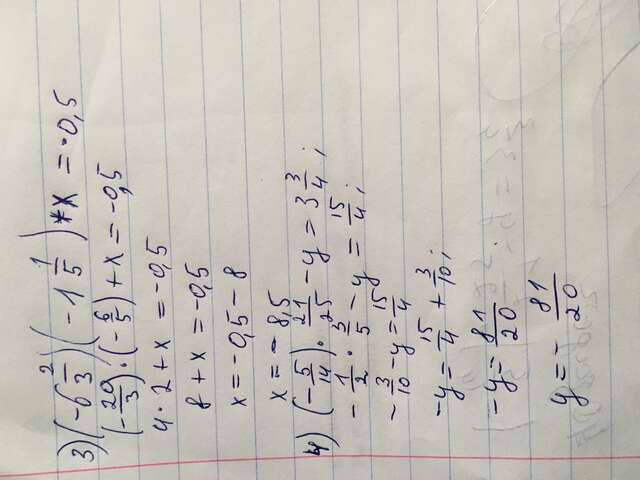 3) (-6 2/3) (-1 1/5) + x = -0,5
(-20/3) · (-6/5) + x = -0,5
4 · 2 + x = -0,5
8 + x = -0,5
x = -0,5 - 8
x = -8,5
4) (-5/14) · 21/25 - y = 3 3/4;
-1/2 · 3/5 - y = 15/4;
-3/10 - y = 15/4
-y = 15/4 + 3/10;
-y = 81/20
y = - 81/20